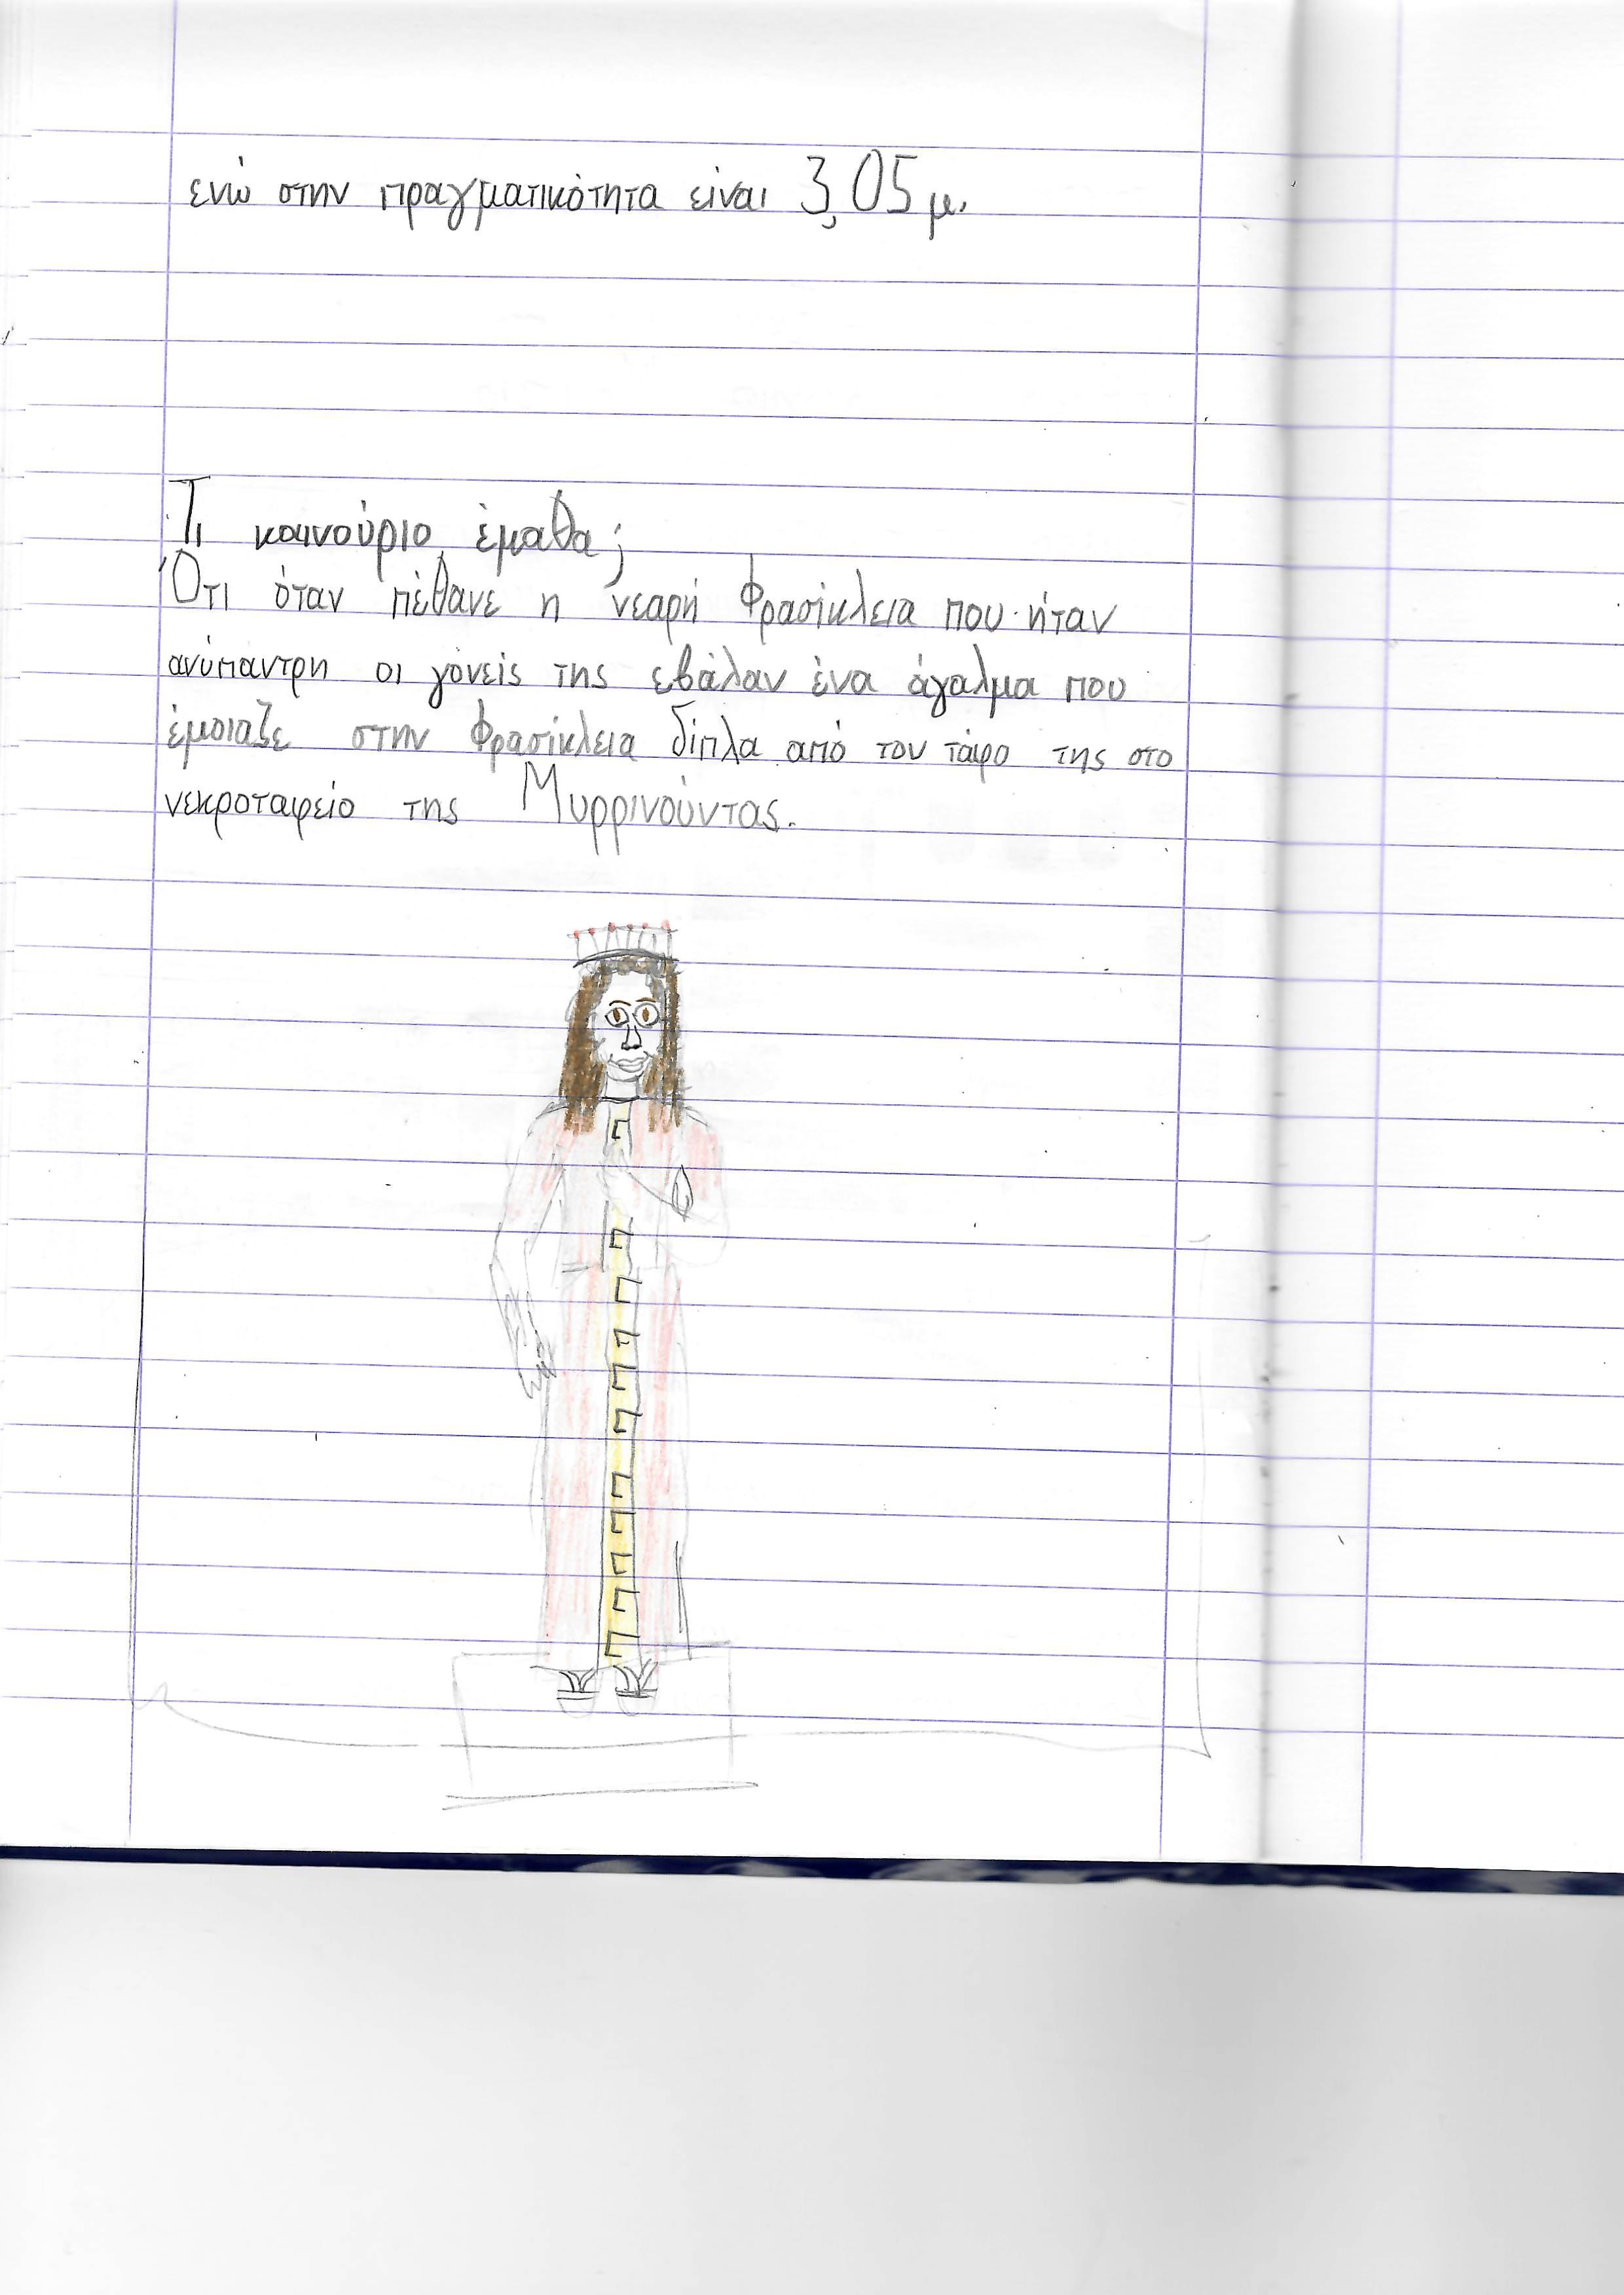 ενώ στην πραγματικότητα είναι 3,05 μ.
Τι καινούριο έμαθα;
Ότι όταν πέθανε η νεαρή Φρασίκλεια που ήταν
ανύπαντρη οι γόνείς της εβάλαν ένα άγαλμα που
έμοιαζε στην Φρασίκλεια δίπλα από τον τάφο της στο
νεκροταφείο της Μυρρινούντας.